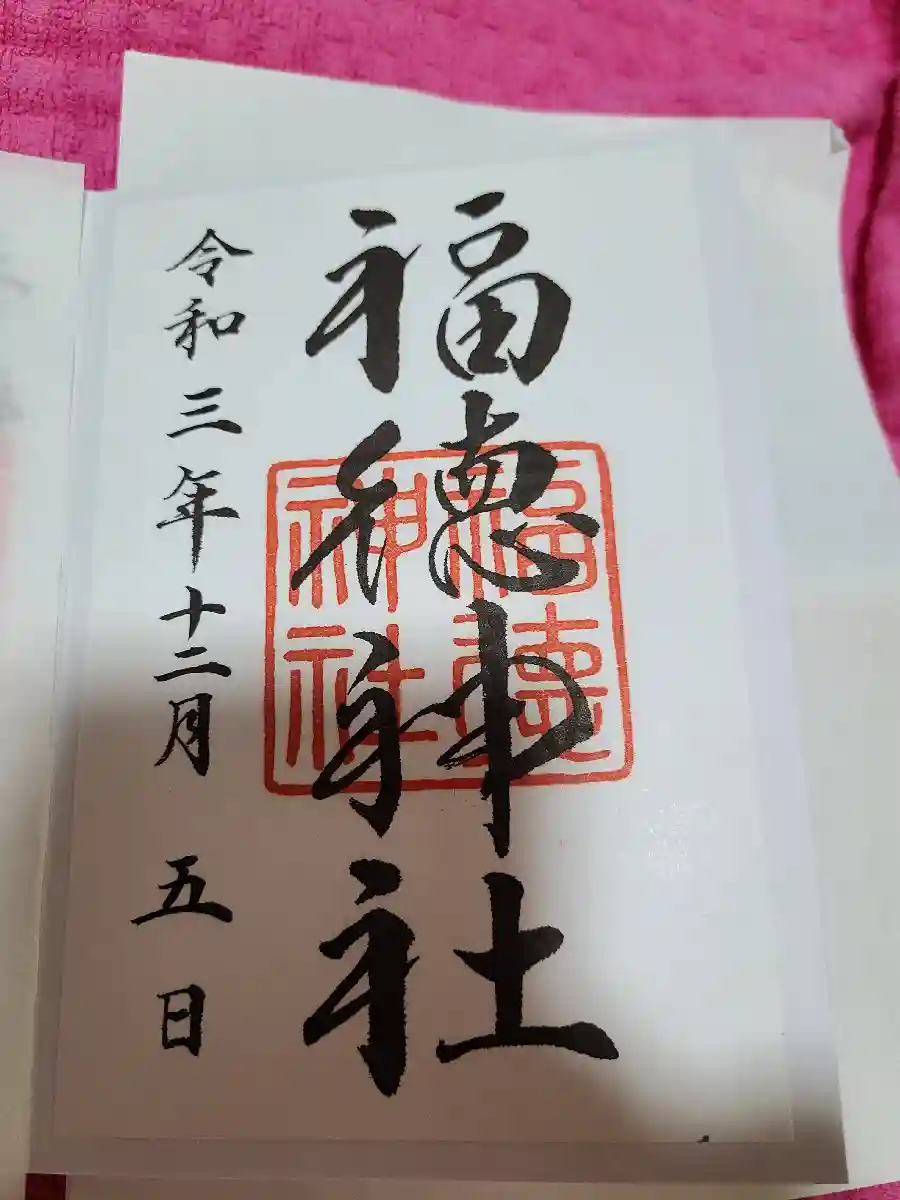 福徳神社
福徳
神社
令和三年十二月五日